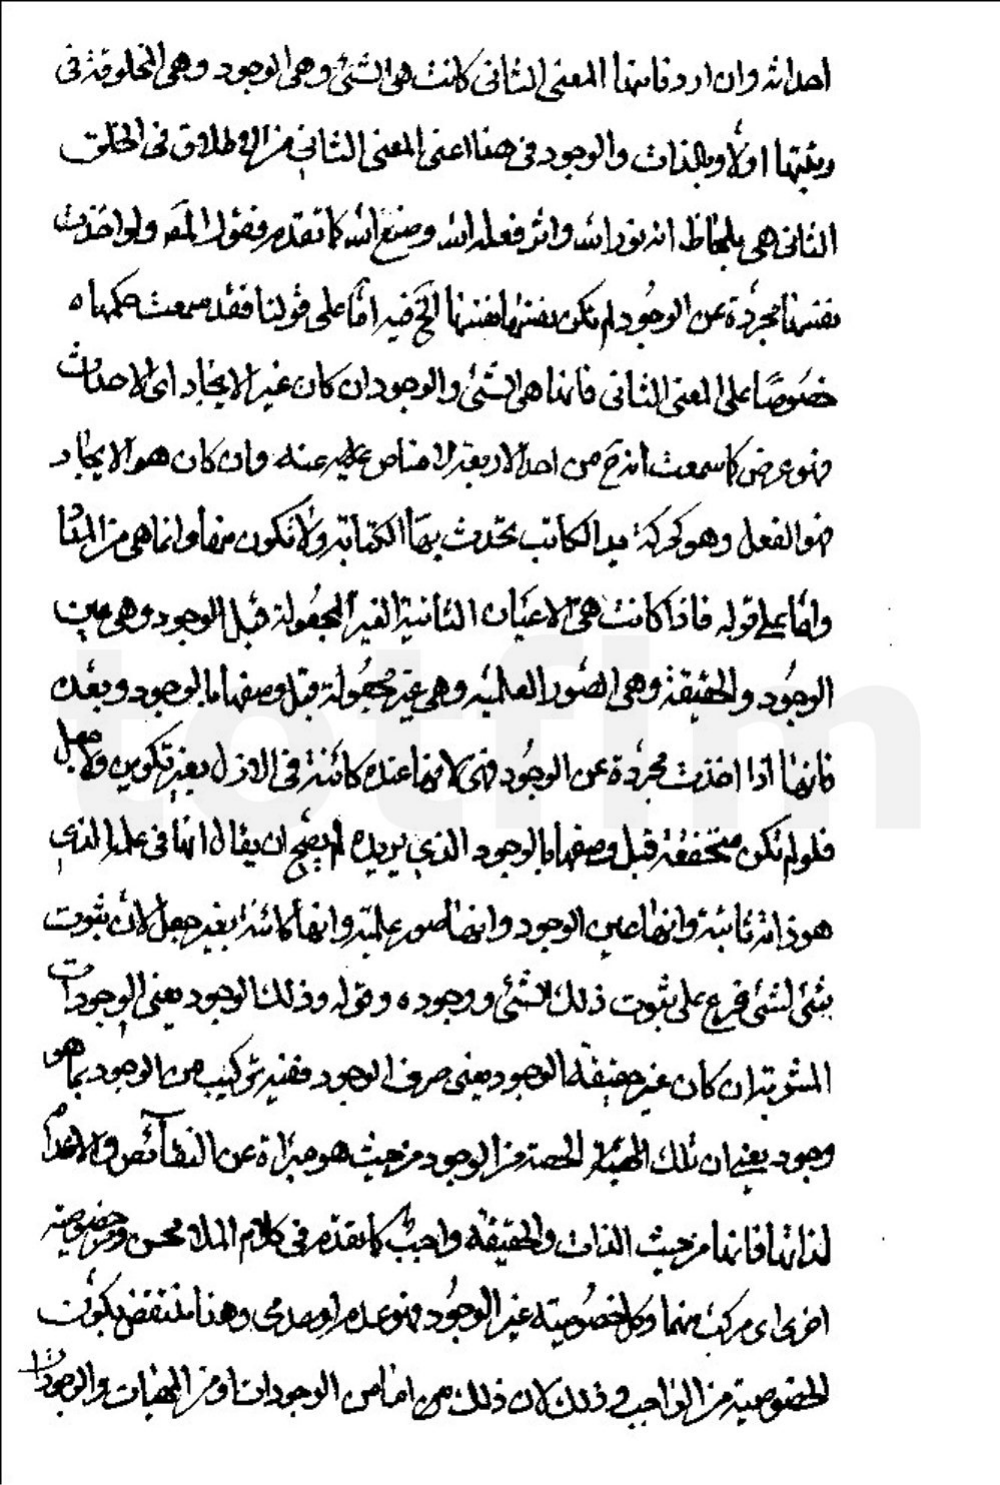 احداثه وان ارد فانها المعنى الثانى كانت هى الشئ وهى الوجود وهى المخلوقة فى
رتبتها اولا وبالذات والوجود فى هذا اعنى المعنى الثانى من الاطلاق فى الخلق
الثانى هى بلحاظ انه نور الله واثر فعل الله وصنع الله كما تقدم وقول المص ولو اخذت
نفسها مجردة عن الوجود لم تكن نفسها نفسها الخ فيه اما على قولنا فقد سمعت حكمها
خصوصا على المعنى الثانى فانها هى الشئ والوجود ان كان غير الايجاد اى الاحداث
فهو عرض كما سمعت انه ح من احد الاربعة لا مناص عنه وان كان هو الايجاد
فهو الفعل وهو كحركة يد الكاتب تحدث بها الكتابة ولا تكون منها وانما هى من المداد
واما على قوله فاذا كانت هى الاعيان الثابتة الغير المجعولة قبل الوجود وهى عين
الوجود والحقيقة وهى الصور العلمية وهى غير مجعولة قبل وصفها بالوجود وبعده
فانها اذا اخذت مجردة عن الوجود فهى لانها عنده كائنة فى الازل بغير تكوين ولا جعل
فلو لم تكن متحققة قبل وصفها بالوجود الذي يريده لم يصح ان يقال انها فى علمه الذي
هو ذاته ثابتة وانها عين الوجود وانها صور علمية وانها كائنة بغير جعل لان ثبوت
شئ لشئ فرع على ثبوت ذلك الشئ ووجوده وقوله وذلك الوجود يعنى الوجودات
المشوبة ان كان غير حقيقة الوجود يعنى صرف الوجود ففيه تركيب من الوجود بما هو
وجود يعنى ان تلك الحصة من الوجود من حيث هو مبراة عن النقائص والاعدام
لذاتها فانها من حيث الذات والحقيقة واجب كما تقدم فى كلام الملا محسن ومن خصوصية
اخرى اى مركب منهما وكل خصوصية غير الوجود فهو عدم او عدمى وهذا منتقض بكون
الخصوصية من الواجب وذلك لان ذلك من امامن الوجودات او من المهيات والوجودات